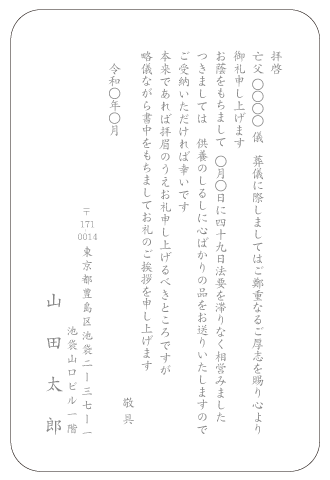 拝啓
亡父 〇〇〇〇 儀 葬儀に際しましてはご鄭重なるご厚志を賜り心より
御礼申し上げます
お蔭をもちまして 〇月〇日に四十九日法要を滞りなく相営みました
つきましては 供養のしるしに心ばかりの品をお送りいたしますので
ご受納いただければ幸いです
本来であれば拝眉のうえお礼申し上げるべきところですが
略儀ながら書中をもちましてお礼のご挨拶を申し上げます
敬具
令和〇年〇月
〒171
0014
東京都豊島区池袋二ー三七ー一
池袋山口ビル一階
山田太郎